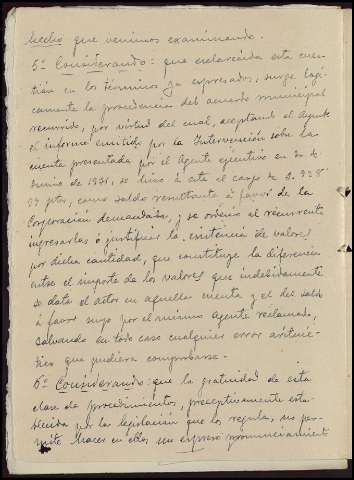 hecho que venimos examinando.
5º Considerando: que esclarecida esta cues-
tión en los términos ya expresados, surge lógi-
camente la procedencia del acuerdo municipal
recurrido, por virtud del cual, aceptando el Ayunt.
el informe emitido por la Intervención sobre la
cuenta presentada por el Agente ejecutivo en 30 de
Junio de 1931, se hizo á éste el cargo de
ptas, como saldo resultante á favor de la
Corporación demandada, y se ordenó al recurrente
ingresarlas ó justificar la existencia de valores
por dicha cantidad, que constituye la diferencia
entre el importe de los valores que indebidamente
se data el actor en aquella cuenta y el del saldo
á favor suyo por el mismo Agente reclamado,
salvando en todo caso cualquier error aritmé-
tico que pudiera comprobarse.
6º Considerando: que la gratuidad de esta
clase de procedimientos, preceptivamente esta-
blecida por la legislación que los regula, no per-
mite hacer en ellos un expreso pronunciamient